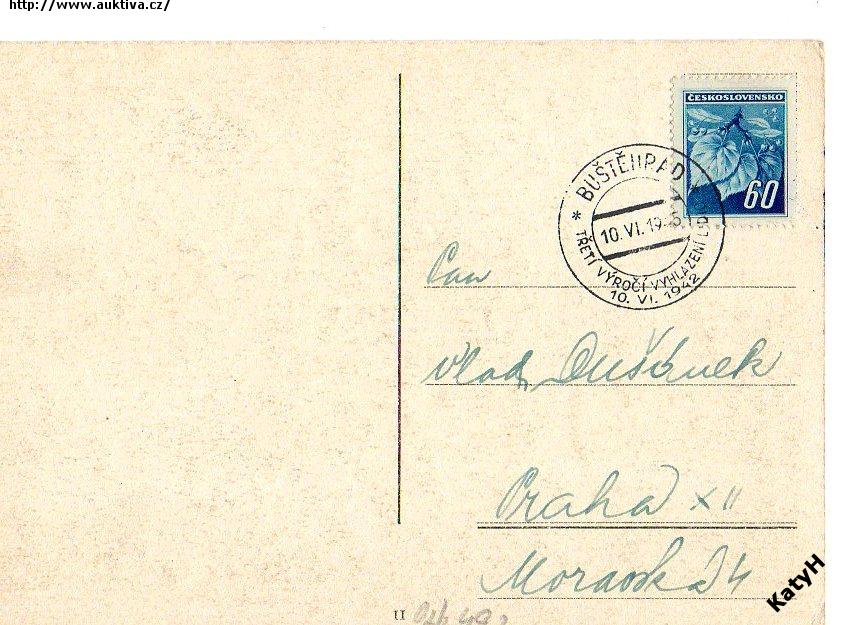 http://www.auktiva.cz/
ČESKOSLOVENSKO
60
* BUŠTĚHRAD *
10.VI.1945
TŘETÍ VÝROČÍ VYHLAZENÍ
10. VI. 1942
Pan
Vlad. Dušánek
Praha XII
Moravská 34
II
KatyH